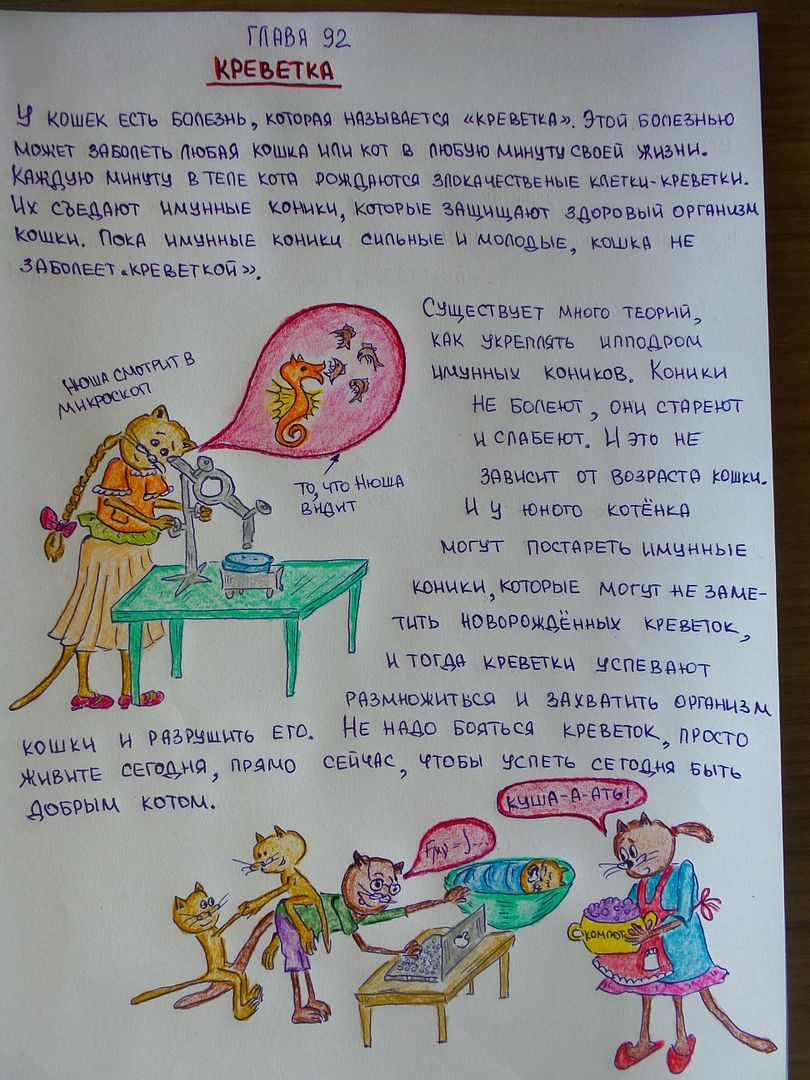 ГЛАВА 92
КРЕВЕТКА
У КОШЕК ЕСТЬ БОЛЕЗНЬ, КОТОРАЯ НАЗЫВАЕТСЯ «КРЕВЕТКА». ЭТОЙ БОЛЕЗНЬЮ
МОЖЕТ ЗАБОЛЕТЬ ЛЮБАЯ КОШКА ИЛИ КОТ В ЛЮБУЮ МИНУТУ СВОЕЙ ЖИЗНИ.
КАЖДУЮ МИНУТУ В ТЕЛЕ КОТА РОЖДАЮТСЯ ЗЛОКАЧЕСТВЕНЫЕ КЛЕТКИ-КРЕВЕТКИ.
ИХ СЪЕДАЮТ ИМУННЫЕ КОНИКИ, КОТОРЫЕ ЗАЩИЩАЮТ ЗДОРОВЫЙ ОРГАНИЗМ
КОШКИ. ПОКА ИМУННЫЕ КОНИКИ СИЛЬНЫЕ И МОЛОДЫЕ, КОШКА НЕ
ЗАБОЛЕЕТ «КРЕВЕТКОЙ».
СУЩЕСТВУЕТ МНОГО ТЕОРИЙ,
КАК УКРЕПЛЯТЬ ИППОДРОМ
ИМУННЫХ КОНИКОВ. КОНИКИ
НЕ БОЛЕЮТ, ОНИ СТАРЕЮТ
И СЛАБЕЮТ. И ЭТО НЕ
ЗАВИСИТ ОТ ВОЗРАСТА КОШКИ.
И У ЮНОГО КОТЁНКА
МОГУТ ПОСТАРЕТЬ ИМУННЫЕ
КОНИКИ, КОТОРЫЕ МОГУТ НЕ ЗАМЕ-
ТИТЬ НОВОРОЖДЁННЫХ КРЕВЕТОК,
И ТОГДА КРЕВЕТКИ УСПЕВАЮТ
РАЗМНОЖИТЬСЯ И ЗАХВАТИТЬ ОРГАНИЗМ
КОШКИ И РАЗРУШИТЬ ЕГО. НЕ НАДО БОЯТЬСЯ КРЕВЕТОК, ПРОСТО
ЖИВИТЕ СЕГОДНЯ, ПРЯМО СЕЙЧАС, ЧТОБЫ УСПЕТЬ СЕГОДНЯ БЫТЬ
ДОБРЫМ КОТОМ.
НЮША СМОТРИТ В
МИКРОСКОП
ТО, ЧТО НЮША
ВИДИТ
КУША-А-АТЬ!
КОМПОТ